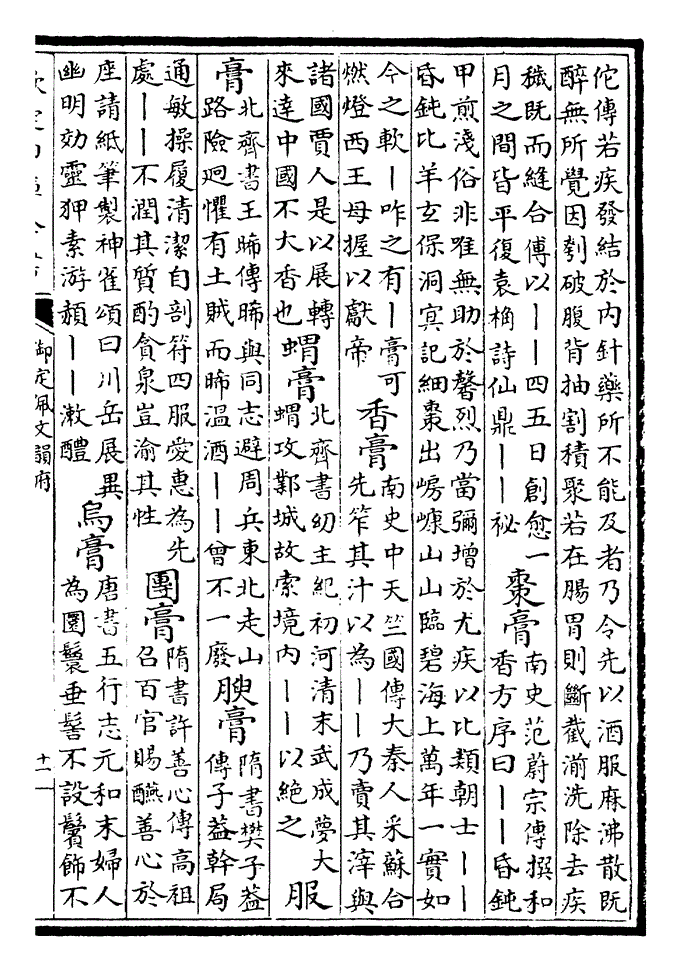 佗傳若疾發結於内針藥所不能及者乃令先以酒服麻沸散既
醉無所覺因刳破腹背抽割積聚若在腸胃則斷截湔洗除去疾
穢既而縫合傅以丨丨四五日創愈一
月之間皆平復袁桷詩仙鼎丨丨祕
棗膏
南史范蔚宗傳撰和
香方序曰丨丨昏鈍
甲煎淺俗非唯無助於馨烈乃當彌增於尤疾以比類朝士丨丨
昏鈍比羊玄保洞冥記細棗出嵻山山臨碧海上萬年一實如
今之軟丨咋之有丨膏可
燃燈西王母握以獻帝
香膏
南史中天竺國傳大秦人采蘇合
先笮其汁以為丨丨乃賣其滓與
諸國賈人是以展轉
來達中國不大香也
蝟膏
北齊書幼主紀初河清末武成夢大
蝟攻鄴城故索境内丨丨以絶之
服
膏
北齊書王晞傳晞與同志避周兵東北走山
路險迥懼有土賊而晞温酒丨丨曾不一廢
腴膏
隋書樊子蓋
傳子蓋幹局
通敏操履清潔自剖符四服愛惠為先
處丨丨不潤其質酌貪泉豈渝其性
團膏
隋書許善心傳高祖
召百官賜醼善心於
座請紙筆製神雀頌曰川岳展異
幽明効靈狎素游赬丨丨漱醴
烏膏
唐書五行志元和末婦人
為圜鬟垂髻不設鬢飾不
欽定四庫全書
御定佩文韻府
十一